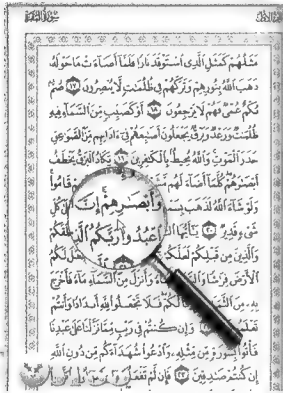 سُورَةُ البَقَرَةِ
مَثَلُهُمْ كَمَثَلِ ٱلَّذِى ٱسْتَوْقَدَ نَارًا فَلَمَّآ أَضَآءَتْ مَا حَوْلَهُۥ
ذَهَبَ ٱللَّهُ بِنُورِهِمْ وَتَرَكَهُمْ فِى ظُلُمَٰتٍ لَّا يُبْصِرُونَ ١٧ صُمٌّۢ
بُكْمٌ عُمْىٌ فَهُمْ لَا يَرْجِعُونَ ١٨ أَوْ كَصَيِّبٍ مِّنَ ٱلسَّمَآءِ فِيهِ
ظُلُمَٰتٌ وَرَعْدٌ وَبَرْقٌ يَجْعَلُونَ أَصَٰبِعَهُمْ فِىٓ ءَاذَانِهِم مِّنَ ٱلصَّوَٰعِقِ
حَذَرَ ٱلْمَوْتِ وَٱللَّهُ مُحِيطٌۢ بِٱلْكَٰفِرِينَ ١٩ يَكَادُ ٱلْبَرْقُ يَخْطَفُ
أَبْصَٰرَهُمْ كُلَّمَآ أَضَآءَ لَهُم قَامُوا۟
وَلَوْ شَآءَ ٱللَّهُ لَذَهَبَ وَأَبْصَٰرِهِمْ كُلِّ
شَىْءٍ قَدِيرٌ ٢٠ يَٰٓأَيُّهَا ٱعْبُدُوا۟ رَبَّكُمُ ٱلَّذِى خَلَقَكُمْ
وَٱلَّذِينَ مِن قَبْلِكُمْ لَعَلَّكُمْ جَعَلَ لَكُمُ
ٱلْأَرْضَ فِرَٰشًا وَأَنزَلَ مِنَ ٱلسَّمَآءِ مَآءً فَأَخْرَجَ
بِهِۦ مِنَ لَّكُمْ فَلَا تَجْعَلُوا۟ لِلَّهِ أَندَادًا وَأَنتُمْ
تَعْلَمُونَ وَإِن كُنتُمْ فِى رَيْبٍ مِّمَّا نَزَّلْنَا عَلَىٰ عَبْدِنَا
فَأْتُوا۟ بِسُورَةٍ مِّن مِّثْلِهِۦ وَٱدْعُوا۟ شُهَدَآءَكُم مِّن دُونِ ٱللَّهِ
إِن كُنتُمْ صَٰدِقِينَ ٢٣ فَإِن لَّمْ تَفْعَلُوا۟